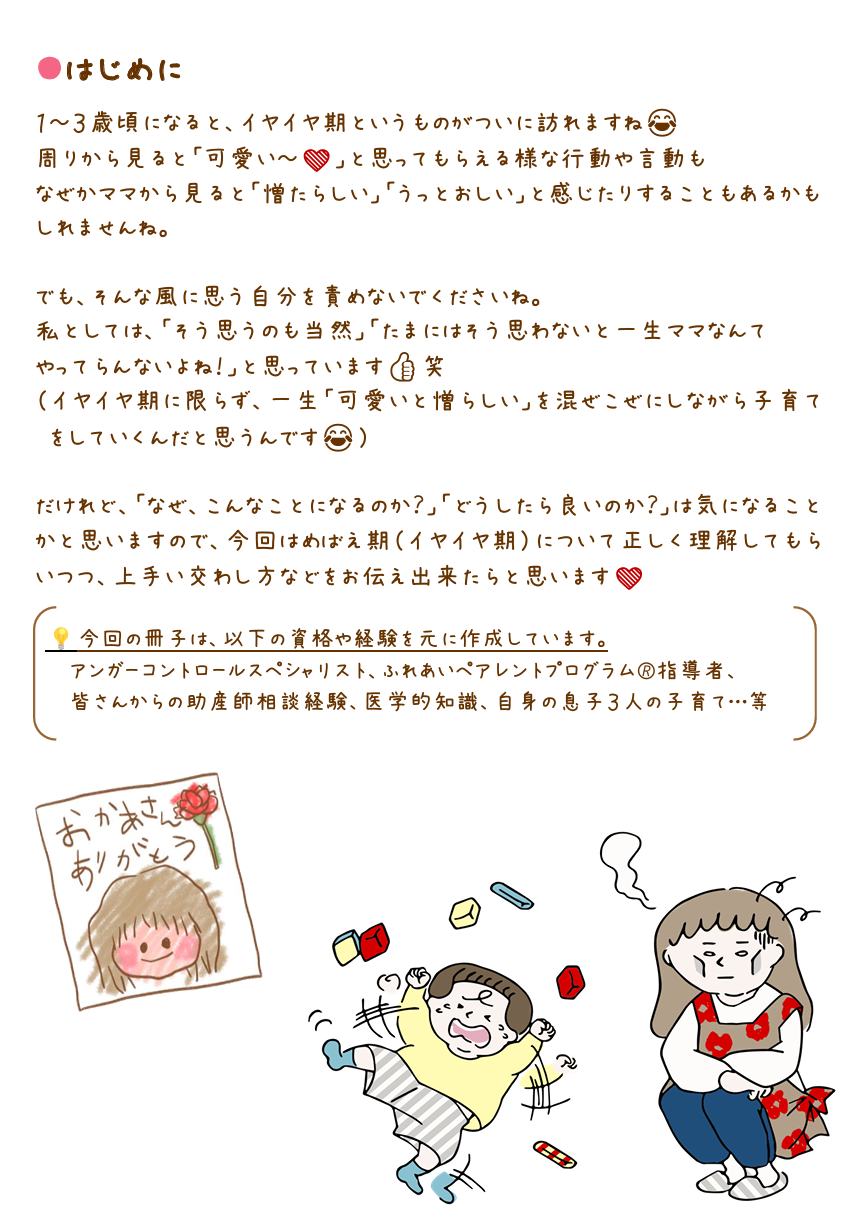 ●はじめに
1〜3歳頃になると、イヤイヤ期というものがついに訪れますね😂
周りから見ると「可愛い〜❤」と思ってもらえる様な行動や言動も
なぜかママから見ると「憎たらしい」「うっとおしい」と感じたりすることもあるかも
しれませんね。
でも、そんな風に思う自分を責めないでくださいね。
私としては、「そう思うのも当然」「たまにはそう思わないと一生ママなんて
やってらんないよね!」と思っています👍笑
(イヤイヤ期に限らず、一生「可愛いと憎らしい」を混ぜこぜにしながら子育て
をしていくんだと思うんです😂)
だけれど、「なぜ、こんなことになるのか?」「どうしたら良いのか?」は気になること
かと思いますので、今回はめばえ期(イヤイヤ期)について正しく理解してもら
いつつ、上手い交わし方などをお伝え出来たらと思います❤
💡今回の冊子は、以下の資格や経験を元に作成しています。
アンガーコントロールスペシャリスト、ふれあいペアレントプログラム®指導者、
皆さんからの助産師相談経験、医学的知識、自身の息子3人の子育て…等
おかあさん
ありがとう